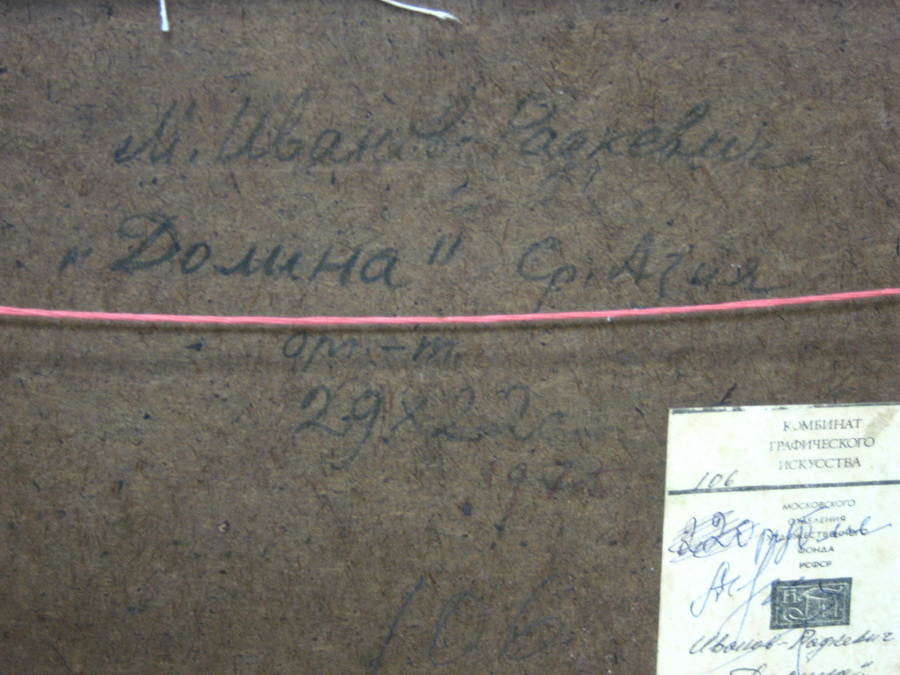 М. Иванов-Радкевич
"Долина" Ср. Азия
орг.-т.
29х22
106
КОМБИНАТ
ГРАФИЧЕСКОГО
ИСКУССТВА
106
МОСКОВСКОГО
ОТДЕЛЕНИЯ
ХУДОЖЕСТВЕННОГО
ФОНДА
РСФСР
220 рублей
Иванов-Радкевич